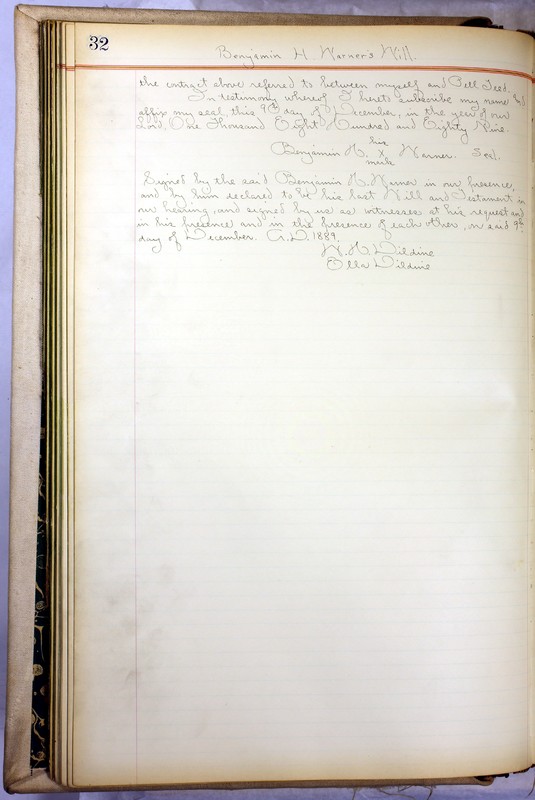 32
Benjamin H. Warner's Will.
the contract above referred to between myself and
In testimony whereof I hereto subscribe my name and
affix my seal, this 9th day of December, in the year of our
Lord, One Thousand Eight Hundred and Eighty Nine.
his
Benjamin H. X Warner. Seal.
mark
Signed by the said Benjamin H. Warner in our presence,
and by him declared to be his last Will and Testament in
our hearing, and signed by us as witnesses at his request and
in his presence and in the presence of each other, on said 9th
day of December. A.D. 1889.
W. H. Dildine
Ella Dildine